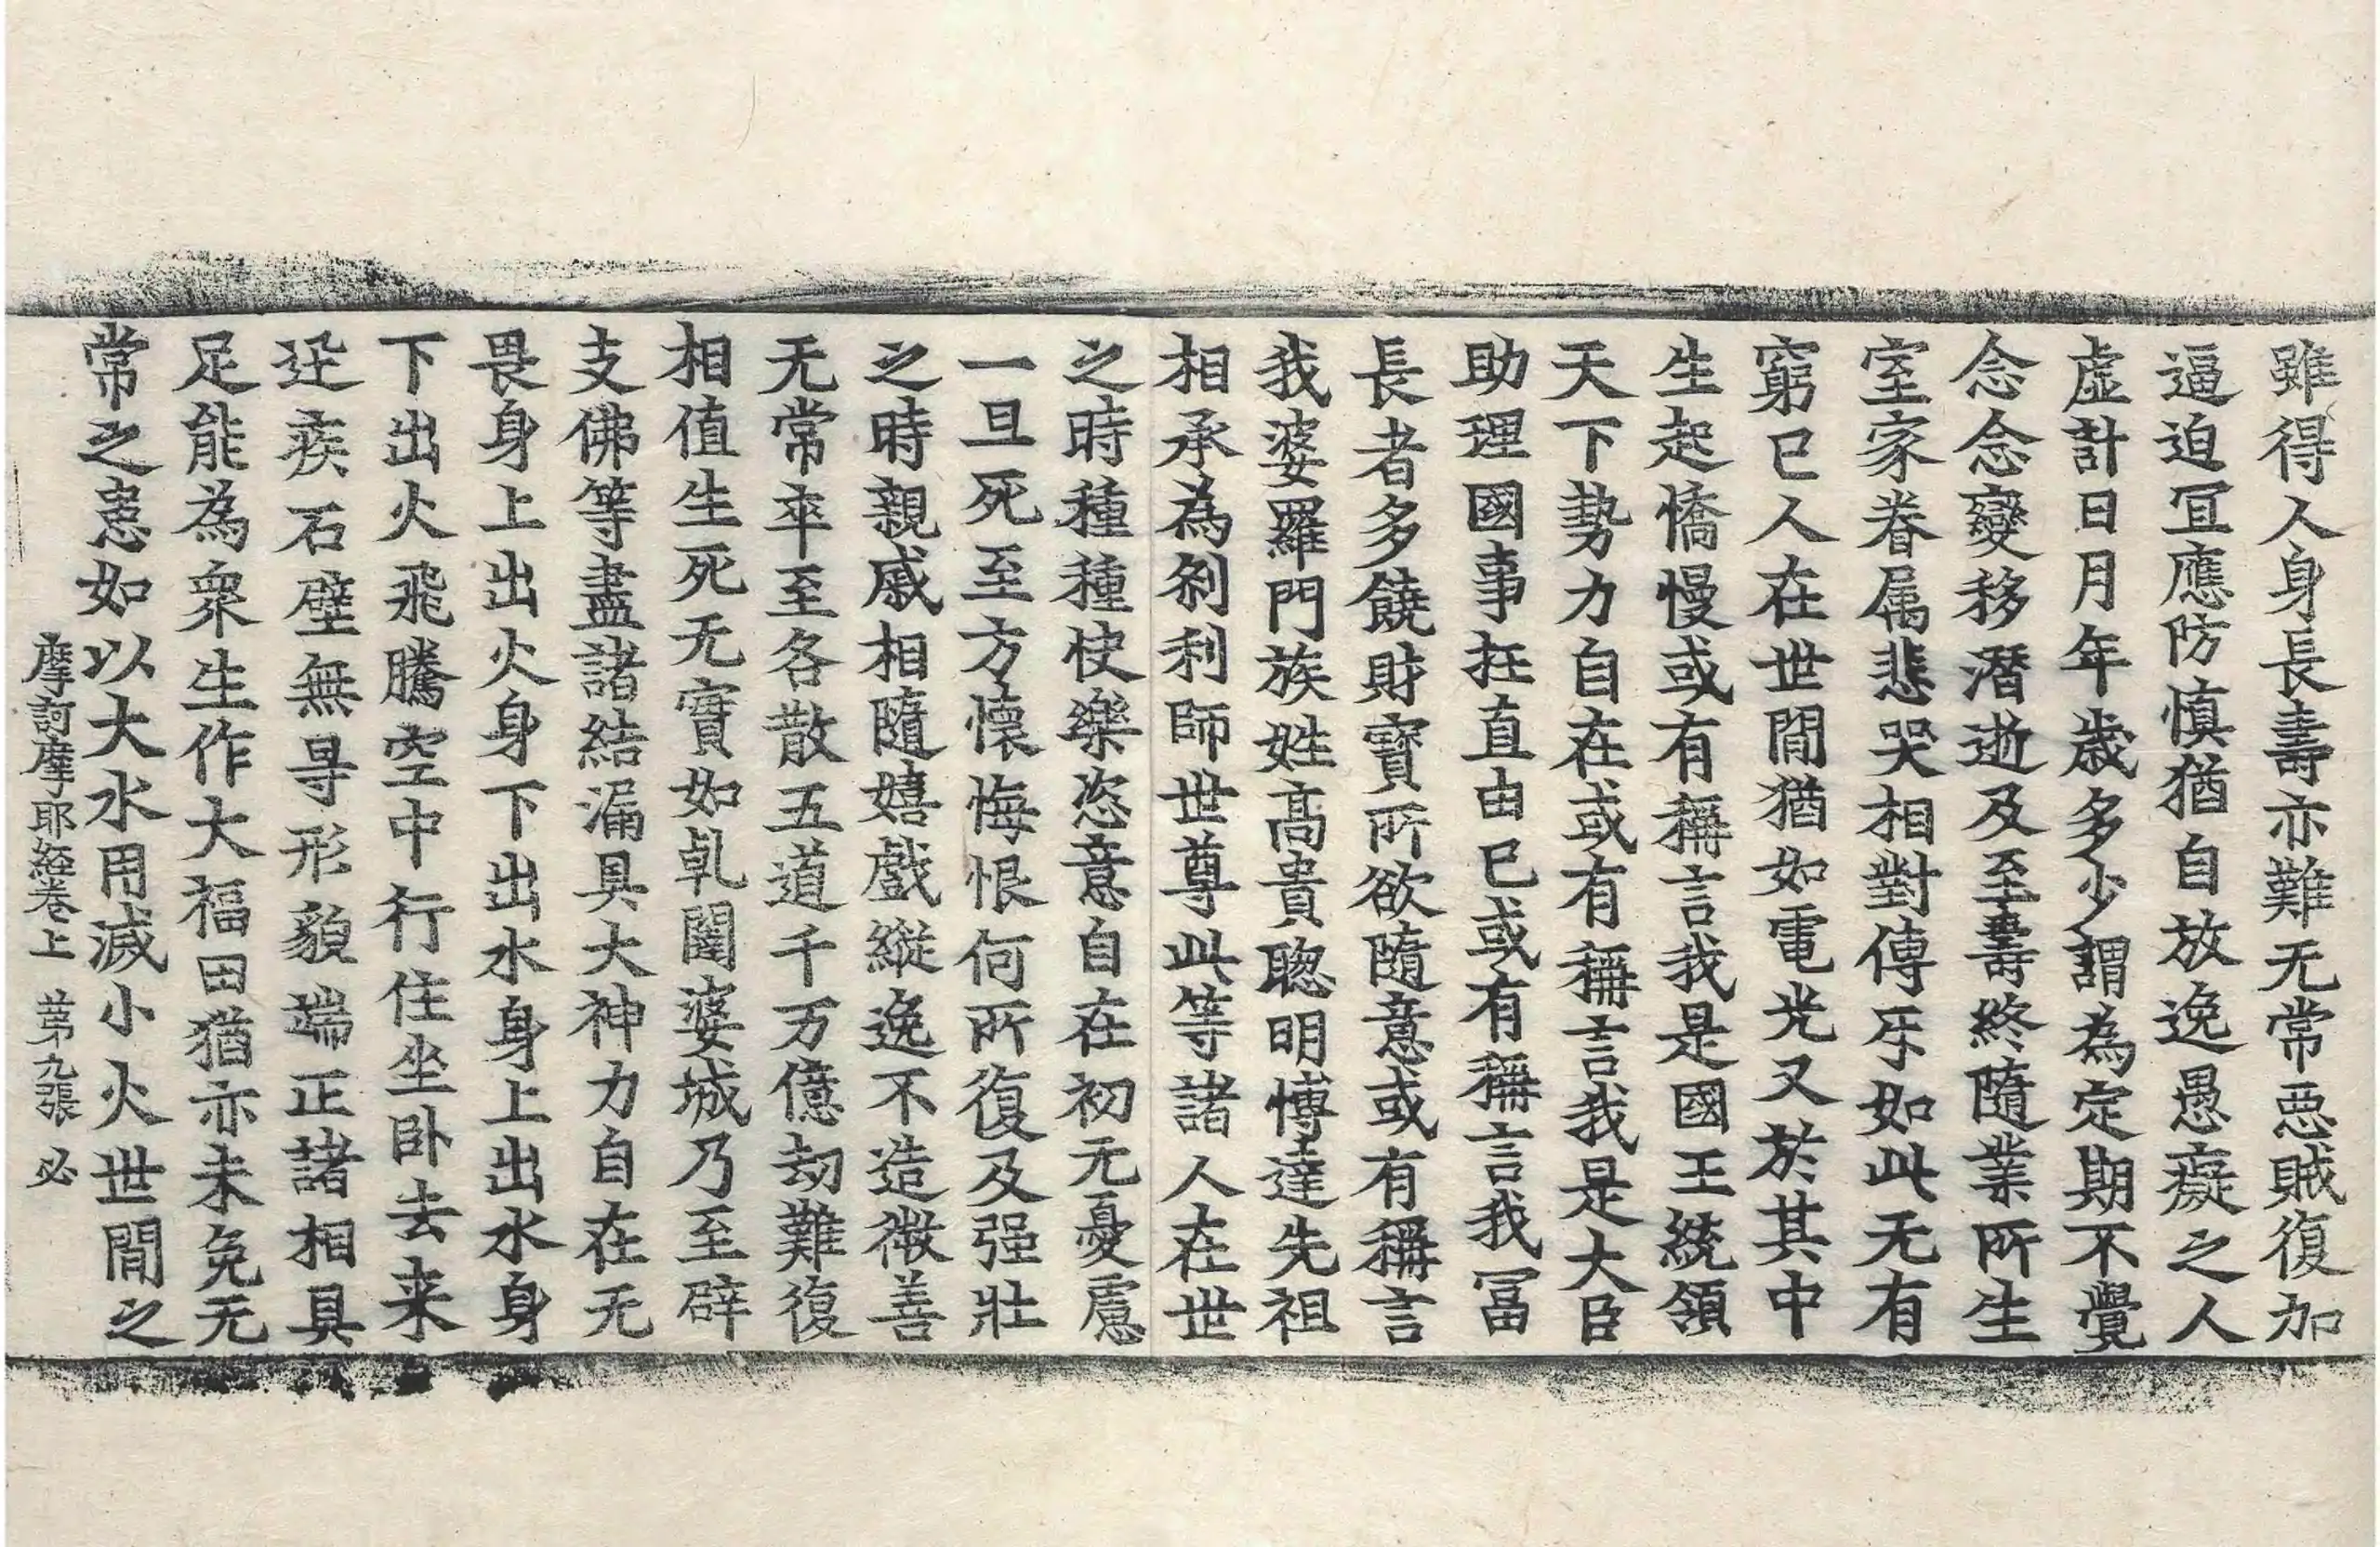 雖得人身長壽亦難无常惡賊復加
逼迫冝應防慎猶自放逸愚癡之人
虛計日月年歲多少謂為定期不覺
念念變移潛逝及至壽終隨業所生
室家眷属悲哭相對傳㸦如此无有
窮已人在世間猶如電光又於其中
生起憍慢或有稱言我是國王統領
天下勢力自在或有稱言我是大臣
助理國事抂直由已或有稱言我冨
長者多饒財寶所欲隨意或有稱言
我婆羅門族姓髙貴聰明博達先祖
相承為刹利師世尊此等諸人在世
之時種種快樂恣意自在初无憂慮
一旦死至方懷悔恨何所復及强壯
之時親戚相隨嬉戲縱逸不造微善
无常卒至各散五道千万億劫難復
相值生死无實如乹闥婆城乃至辟
支佛等盡諸結漏具大神力自在无
畏身上出火身下出水身上出水身
下出火飛騰空中行住坐卧去来
迳疾石壁無㝵形貌端正諸相具
足能為衆生作大福田猶亦未免无
常之患如以大水用滅小火世間之
摩訶摩耶經卷上 苐九張 必